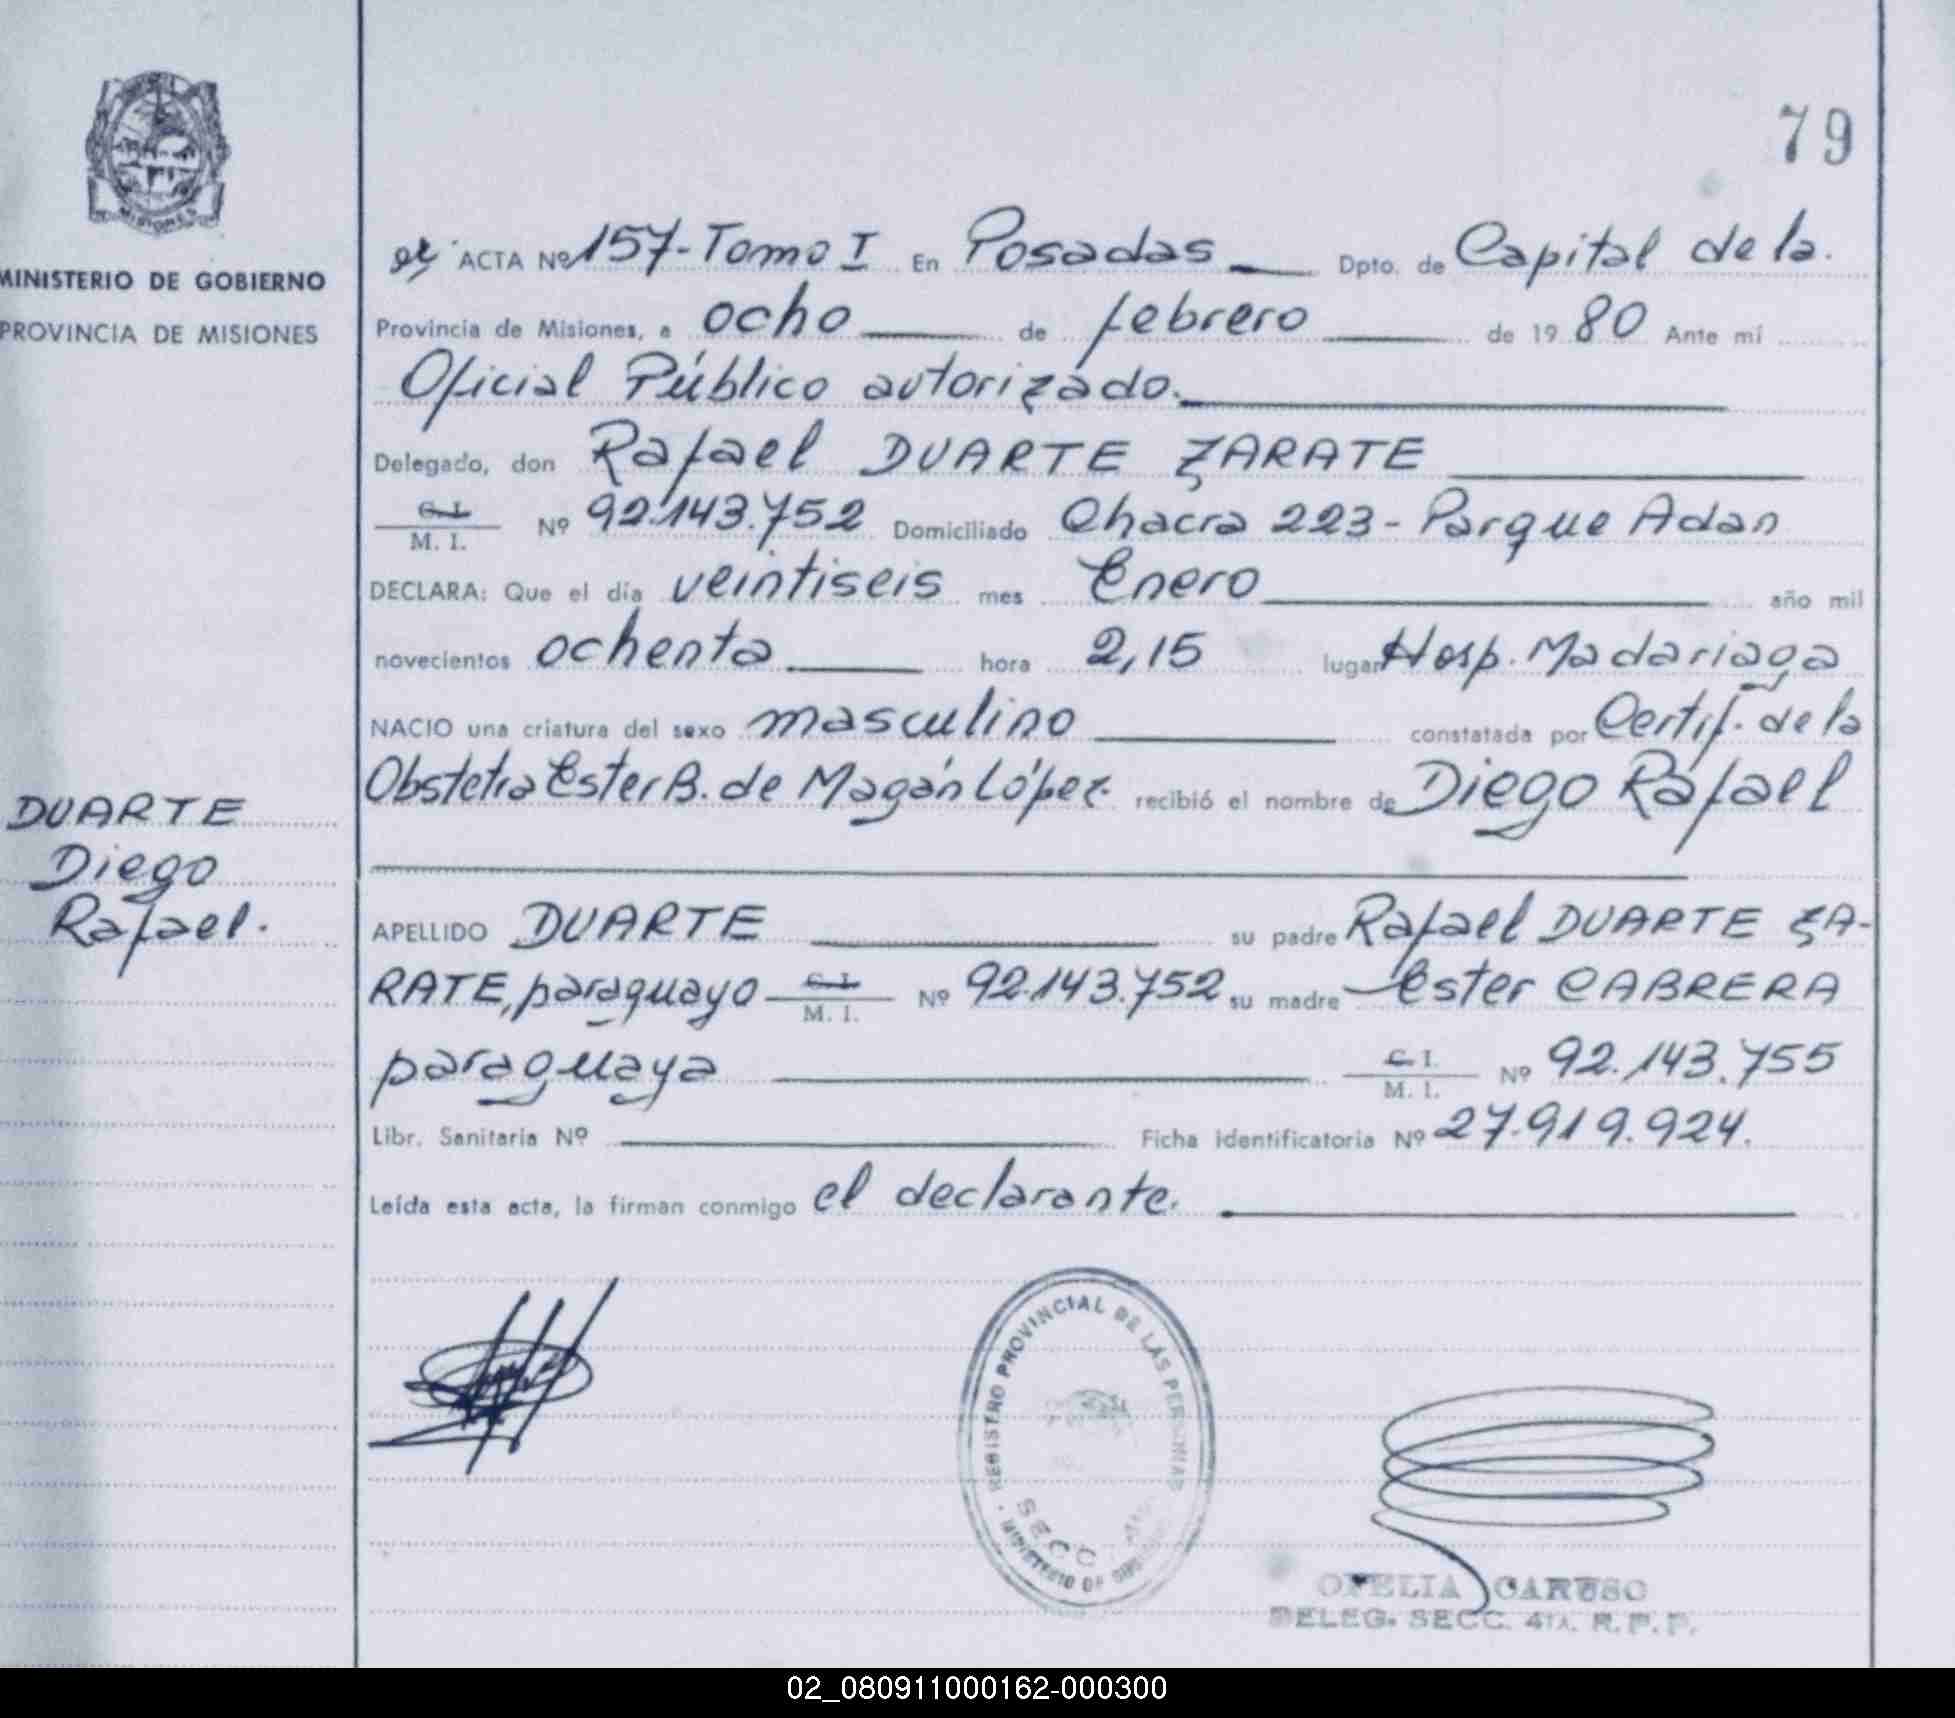 79
MISIONES
MINISTERIO DE GOBIERNO
PROVINCIA DE MISIONES
DUARTE
Diego
Rafael.
ACTA Nº 157-Tomo I En Posadas Dpto. de Capital de la.
Provincia de Misiones, a ocho de febrero de 1980 Ante mí
Oficial Público autorizado.
Delegado, don Rafael DUARTE ZARATE
C. I.
M. I. Nº 92.143.752 Domiciliado Chacra 223 - Parque Adan
DECLARA: Que el día veintiseis mes Enero año mil
novecientos ochenta hora 2,15 lugar Hosp. Madariaga
NACIO una criatura del sexo masculino constatada por Certif. de la
Obstetra Ester B. de Magán López recibió el nombre de Diego Rafael
APELLIDO DUARTE su padre Rafael DUARTE ZA-
RATE, paraguayo C. I. M. I. Nº 92.143.752 su madre Ester CABRERA
paraguaya C. I. M. I. Nº 92.143.755
Libr. Sanitaria Nº Ficha identificatoria Nº 27.919.924.
Leída esta acta, la firman conmigo el declarante.
REGISTRO PROVINCIAL DE LAS PERSONAS
SECC.
MINISTERIO DE
OFELIA CARUSO
DELEG. SECC. 4TA. R.P.P.
02_080911000162-000300